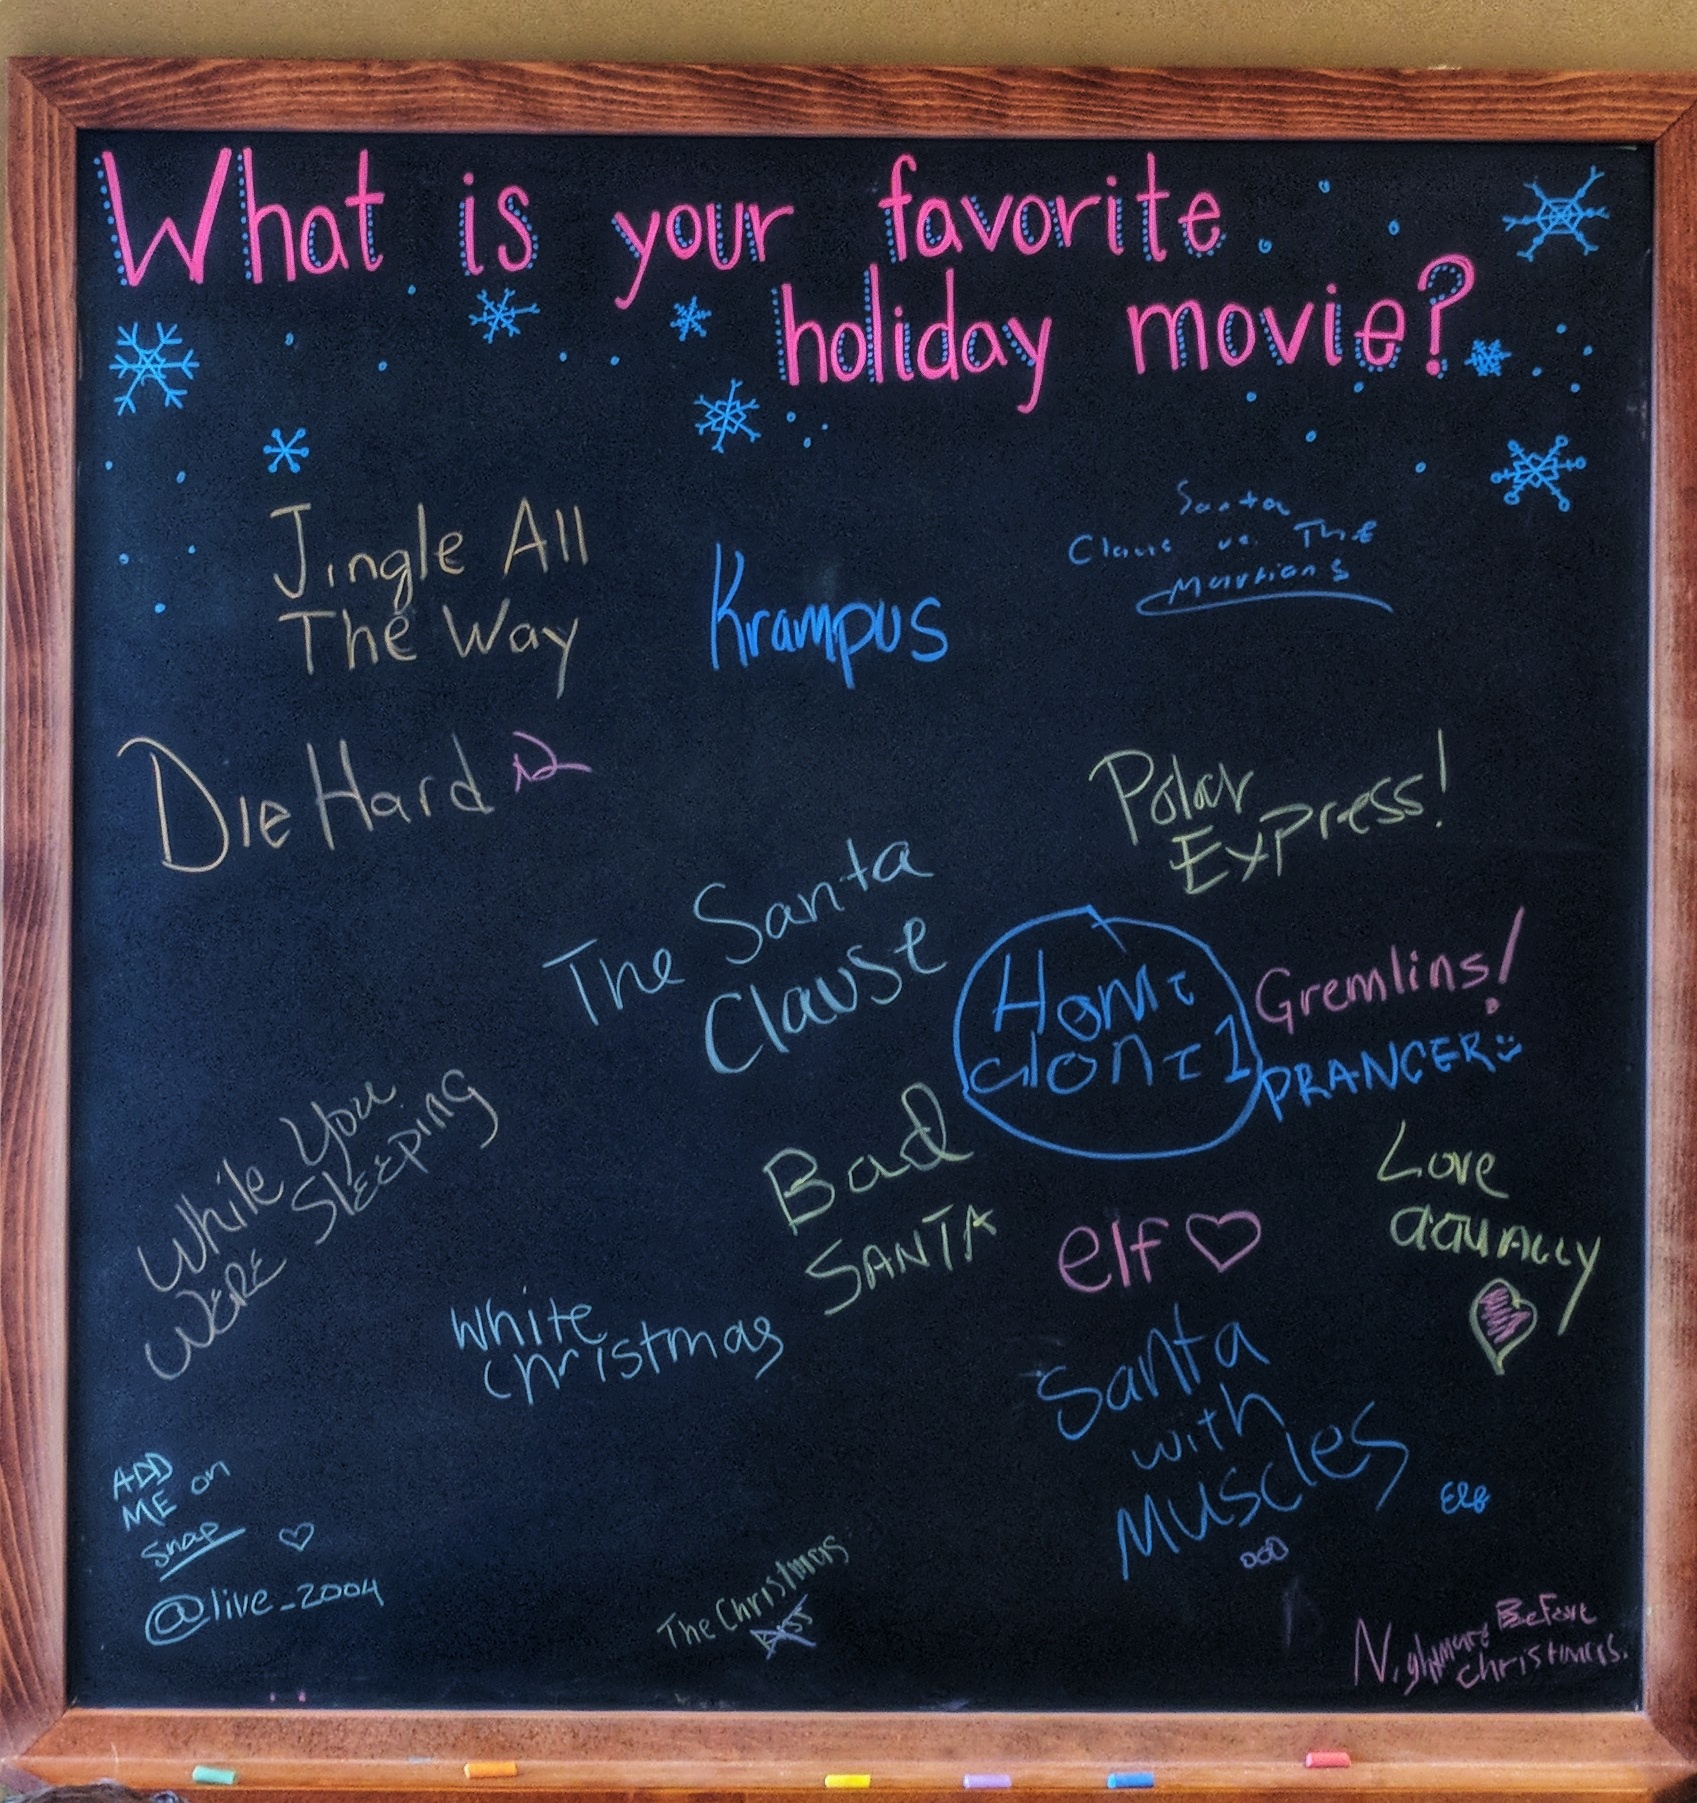 What is your favorite
holiday movie?
Jingle All
The Way
Krampus
Santa
Claus vs. The
Martians
Die Hard 2
Polar
Express!
The Santa
Clause
Home
alone 1
Gremlins!
PRANCER
While You
Were Sleeping
Bad
SANTA
Love
actually
elf
White
Christmas
Santa
with
Muscles
Elf
ADD
ME on
snap
@live_2004
The Christmas
Nightmare Before
Christmas.